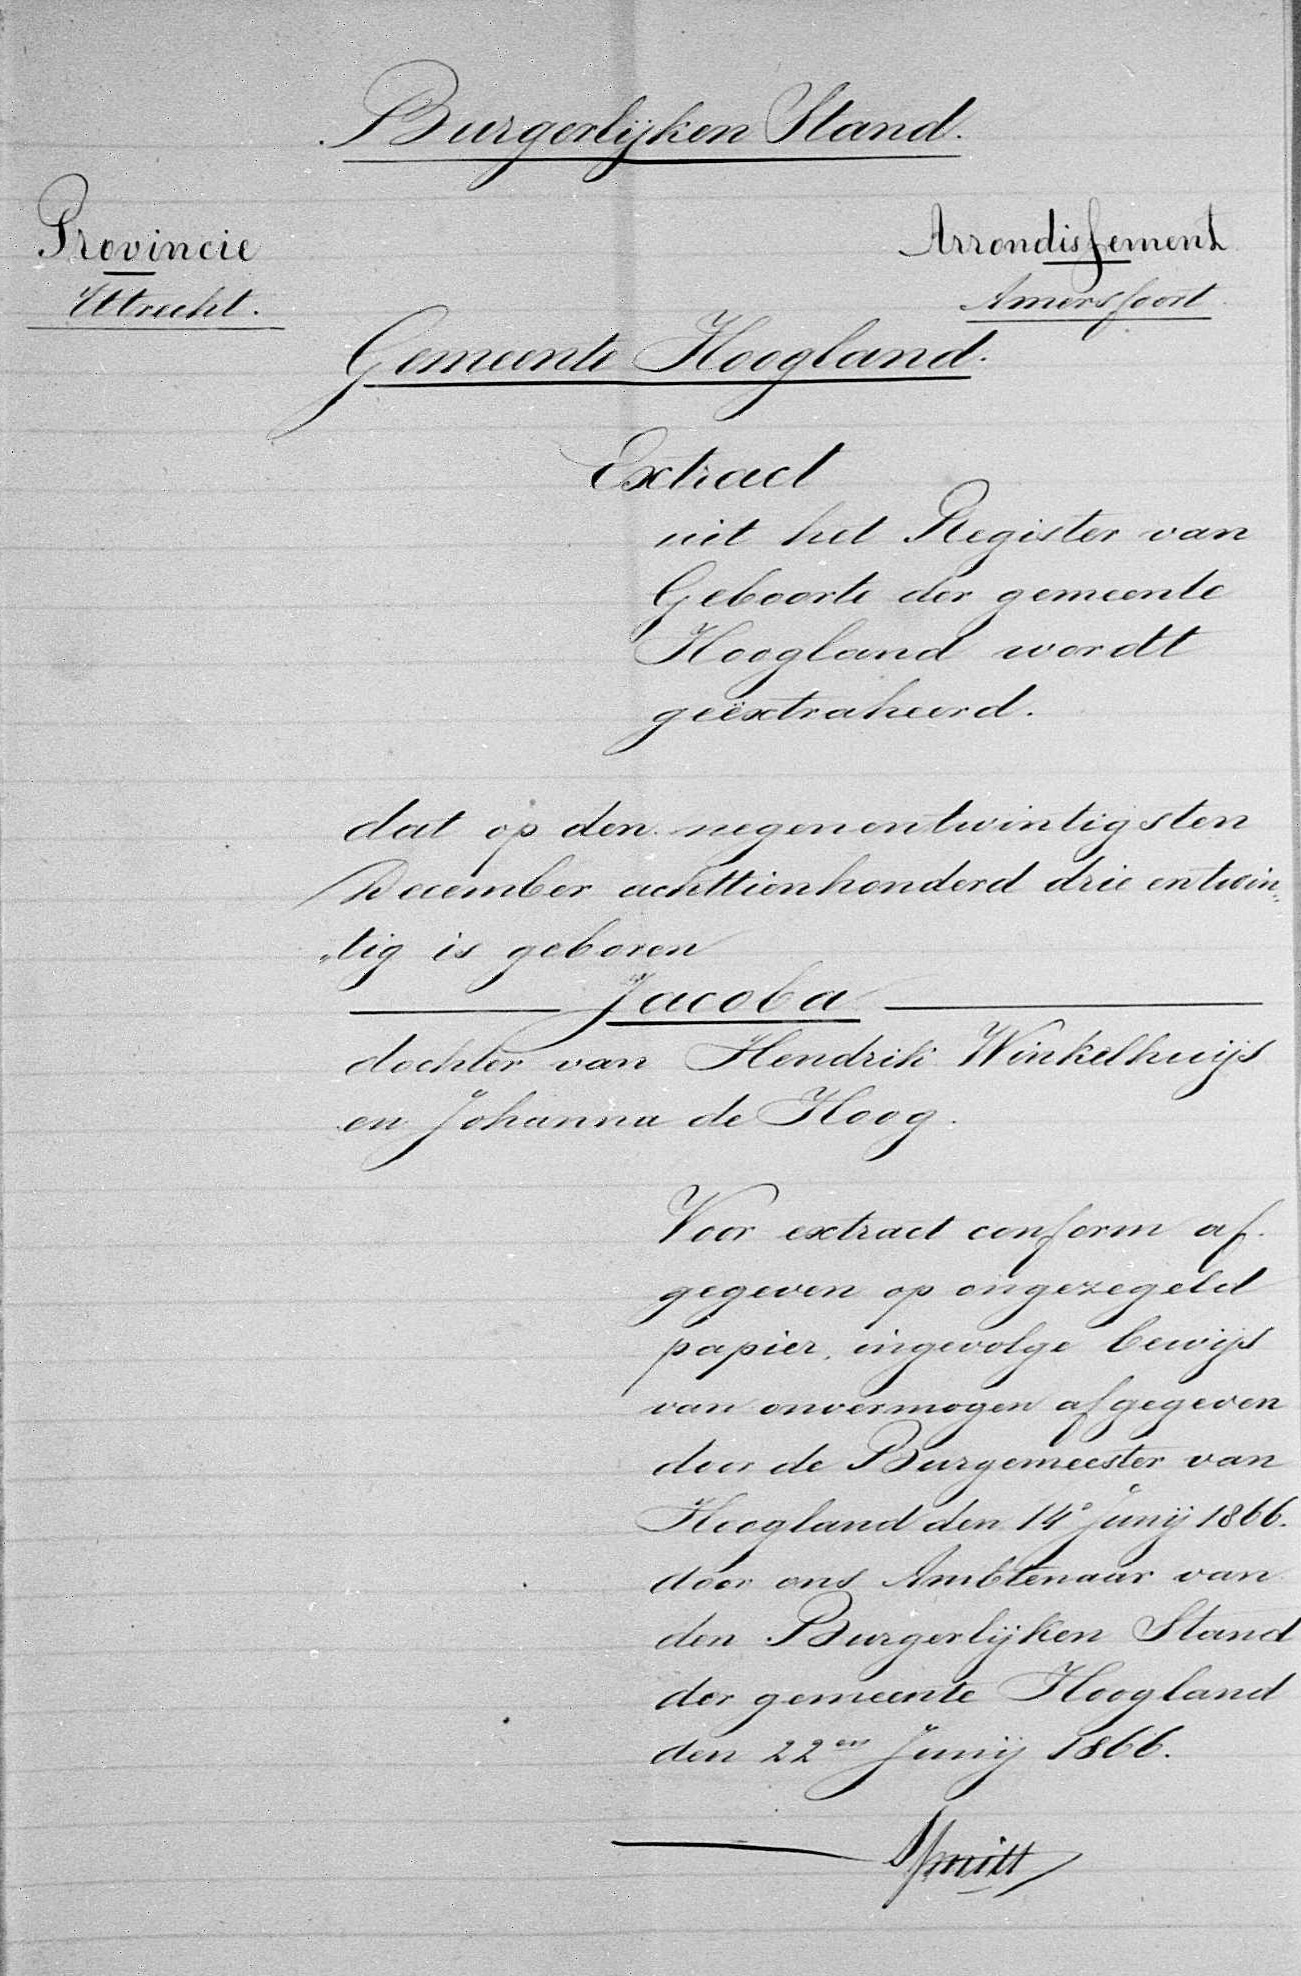 Burgerlijken Stand.
Provincie
Arrondissement
Uttrecht.
Amersfoort
Gemeente Hoogland.
Extract
uit het Register van
Geboorte der gemeente
Hoogland wordt
geëxtraheerd.
dat op den negenentwintigsten
December achttienhonderd drie entwin„
„tig is geboren
Jacoba
dochter van Hendrik Winkelhuijs
en Johanna de Hoog.
Voor extract conform af-
gegeven op ongezegeld
papier, ingevolge bewijs
van onvermogen afgegeven
door de Burgemeester van
Hoogland den 14e Junij 1866.
door ons Ambtenaar van
den Burgerlijken Stand
der gemeente Hoogland
den 22en Junij 1866.